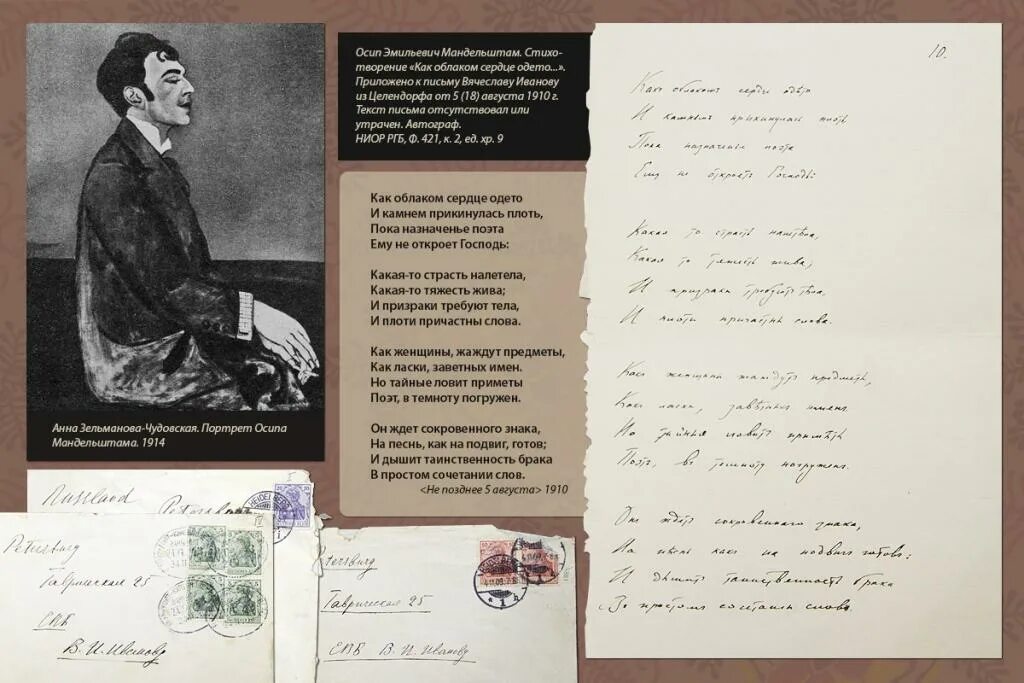 Осип Эмильевич Мандельштам. Стихо-
творение «Как облаком сердце одето...».
Приложено к письму Вячеславу Иванову
из Целендорфа от 5 (18) августа 1910 г.
Текст письма отсутствовал или
утрачен. Автограф.
НИОР РГБ, Ф. 421, к. 2, ед. хр. 9
Анна Зельманова-Чудовская. Портрет Осипа
Мандельштама. 1914
Как облаком сердце одето
И камнем прикинулась плоть,
Пока назначенье поэта
Ему не откроет Господь:
Какая-то страсть налетела,
Какая-то тяжесть жива;
И призраки требуют тела,
И плоти причастны слова.
Как женщины, жаждут предметы,
Как ласки, заветных имен.
Но тайные ловит приметы
Поэт, в темноту погружен.
Он ждет сокровенного знака,
На песнь, как на подвиг, готов;
И дышит таинственность брака
В простом сочетании слов.
<Не позднее 5 августа> 1910
10.
Какъ облакомъ сердце одѣто
И камнемъ прикинулась плоть
Пока назначенье поэта
Ему не откроетъ Господь:
Какая то страсть налетѣла,
Какая то тяжесть жива;
И призраки требуютъ тѣла,
И плоти причастны слова.
Какъ женщины жаждутъ предметы,
Какъ ласки, завѣтныхъ именъ.
Но тайныя ловитъ примѣты
Поэтъ, въ темноту погруженъ.
Онъ ждетъ сокровеннаго знака,
На пѣснь какъ на подвигъ готовъ:
И дышитъ таинственность брака
Въ простомъ сочетаньи словъ.
Russland
Petersburg
HEIDELBERG
Petersburg
Таврическая 25
СПБ
В. И. Иванову
tersburg
Таврическая 25
СПБ В. И. Иванову